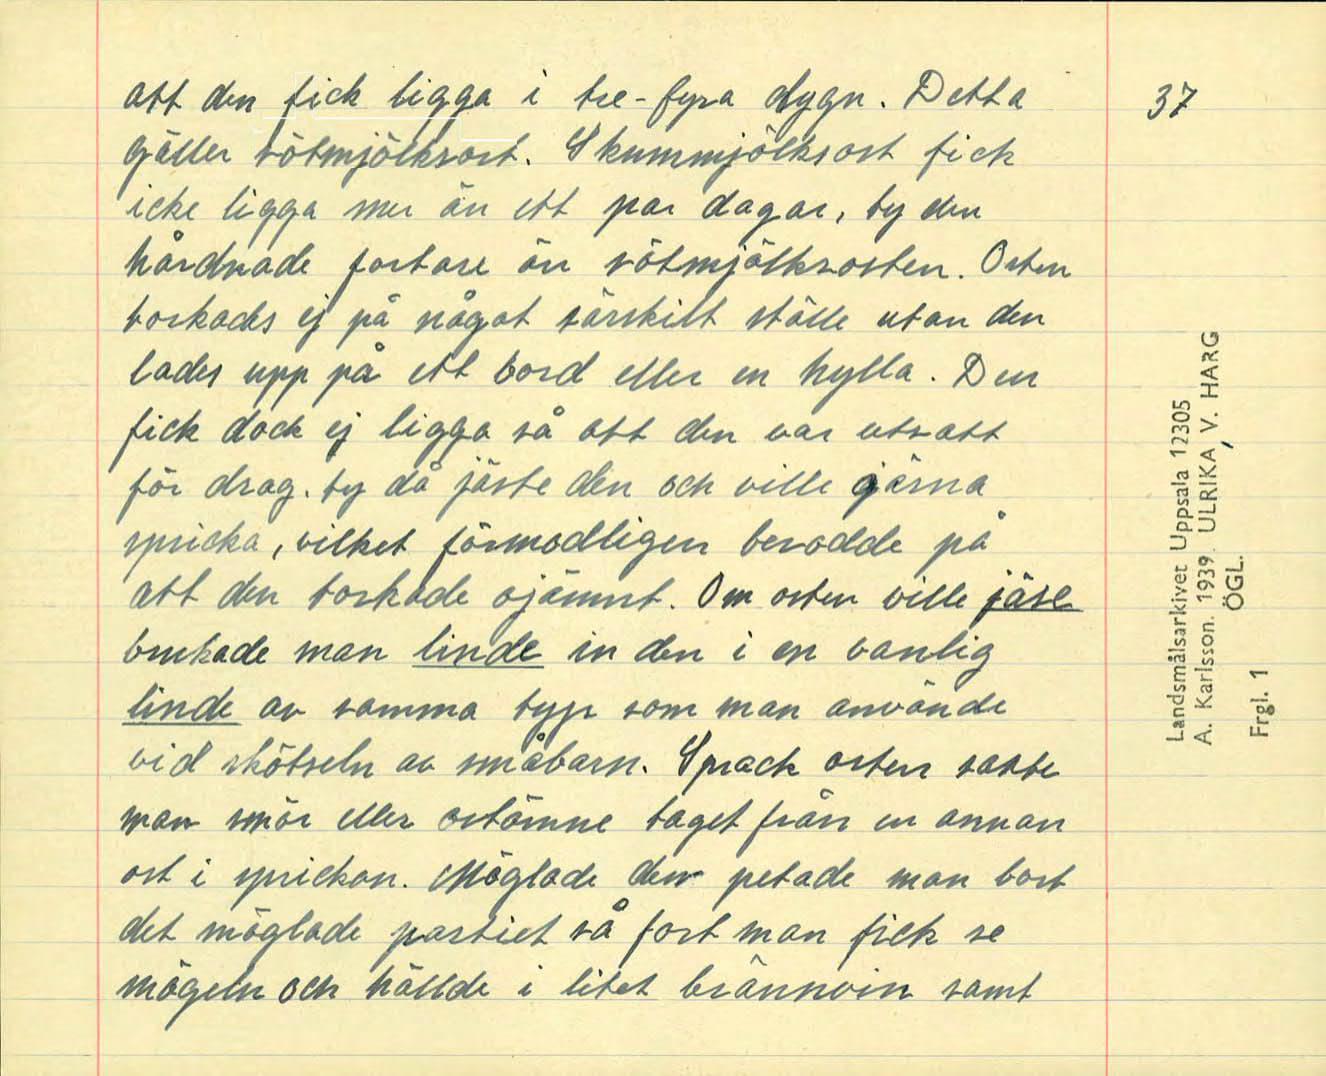 att den fick ligga i tre-fyra dygn. Detta
gäller sötmjölksost. Skummjölksost fick
icke ligga mer än ett par dagar, ty den
hårdnade fortare än sötmjölksosten. Osten
torkades ej på något särskilt ställe utan den
lades upp på ett bord eller en hylla. Den
fick dock ej ligga så att den var utsatt
för drag, ty då jäste den och ville gärna
spricka, vilket förmodligen berodde på
att den torkade ojämnt. Om osten ville jäsa
brukade man linde in den i en vanlig
linde av samma typ som man använde
vid skötseln av småbarn. Sprack osten satte
man smör eller ostämne taget från en annan
ost i sprickan. Möglade den petade man bort
det möglade partiet så fort man fick se
mögeln och hällde i litet brännvin samt
37
Landsmålsarkivet Uppsala 12305
A. Karlsson. 1939. ULRIKA, V. HARG
ÖGL.
Frgl. 1